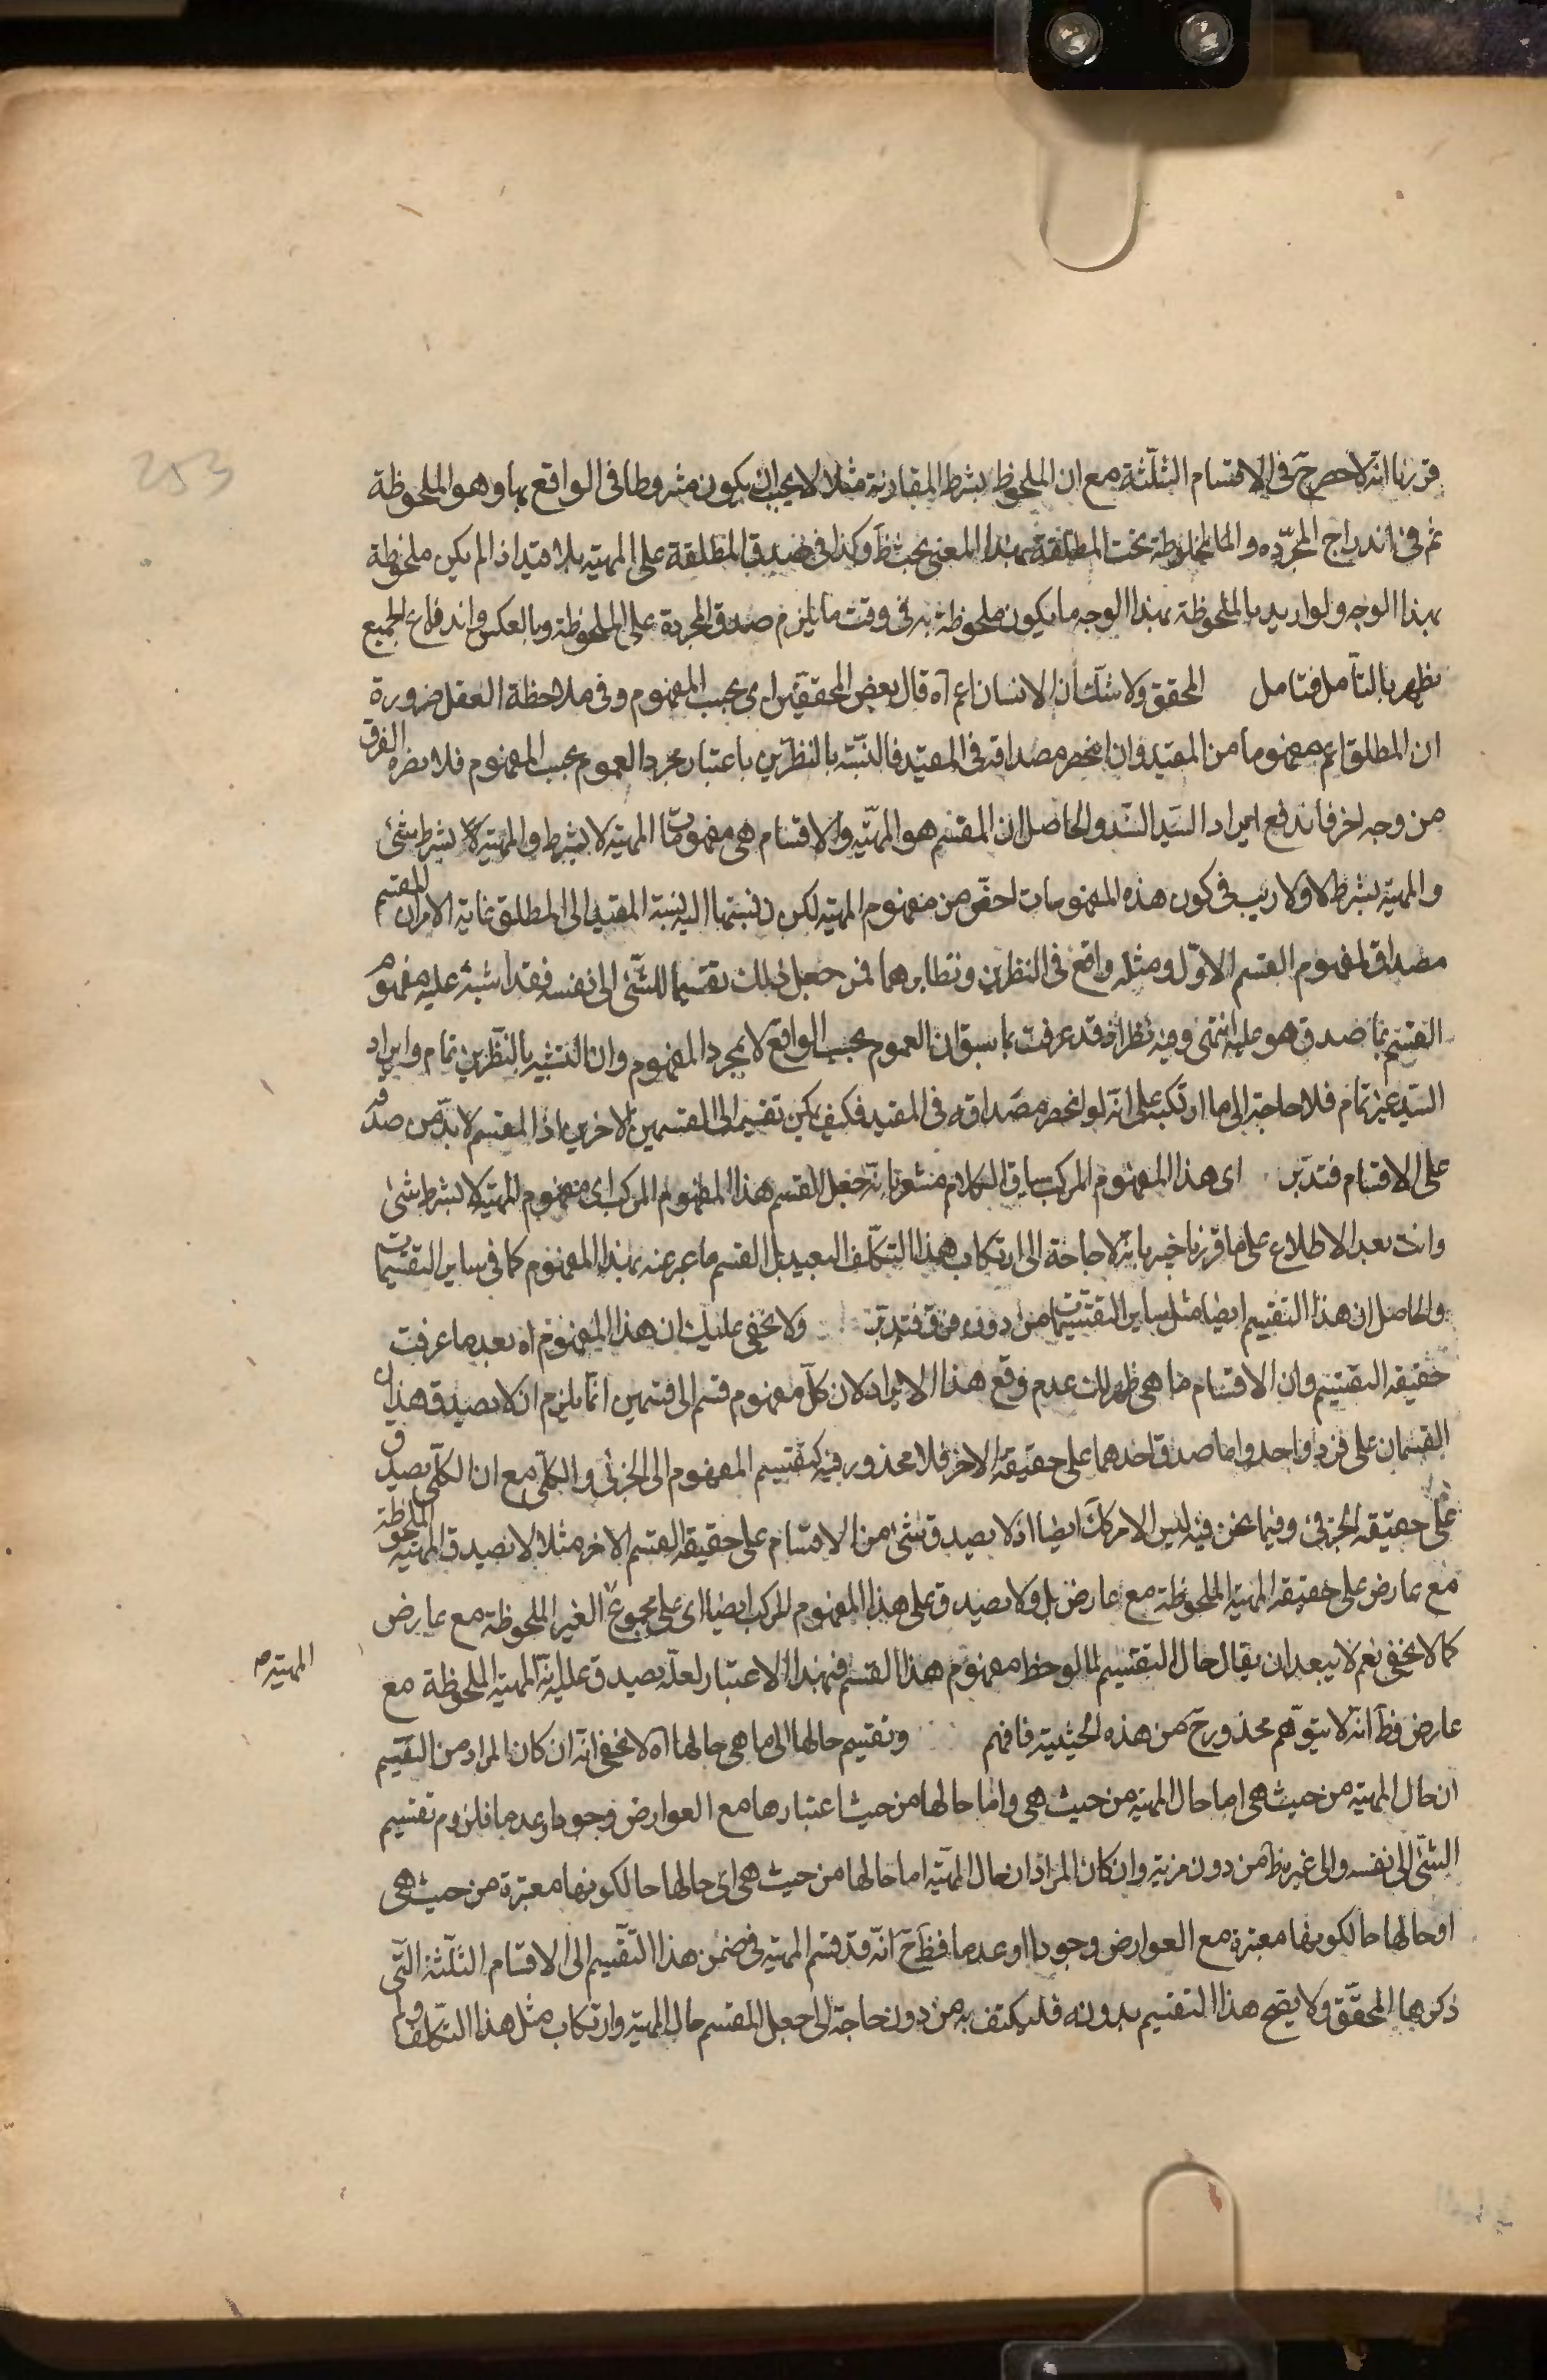 253
قررنا انه لا حصر ح فى الاقسام الثلثة مع ان الملحوظ بشرط المقارنة مثلا لا يجب ان يكون مشروطا فى الواقع بها وهو الملحوظة
ثم فى اندراج المجرّده و المخلوطة تحت المطلقة بهذا المعنى بحث ظ وكذا فى صدق المطلقة على المهية بلا قيد اذ لم يكن ملحوظة
بهذا الوجه ولو اريد بالملحوظة بهذا الوجه ما يكون ملحوظة به فى وقت ما يلزم صدق المجردة على الملحوظة وبالعكس واندفاع الجميع
يظهر بالتأمل فتامل المحقق ولا شك أن الانسان اعم آه قال بعض المحققين اى بحسب المفهوم وفى ملاحظة العقل ضرورة
ان المطلق اعم مفهوما من المقيد وان انحصر مصداقه فى المقيد فالتشبيه بالنظرين باعتبار مجرد العموم بحسب المفهوم فلا يضره الفرق
من وجه اخر فاندفع ايراد السيد السند والحاصل ان المقسم هو المهيّه والاقسام هى مفهومات المهية لا بشرط والمهية بشرط شئ
والمهية بشرط لا ولا ريب فى كون هذه المفهومات اخص من مفهوم المهية لكن نسبتها اليه نسبة المقيد الى المطلق غاية الامر ان للمقسم
مصداق لمفهوم القسم الاوّل ومثله واقع فى النظرين ونظايرهما فمن جعل ذلك تقسيما للشئ الى نفسه فقد اشتبه عليه مفهوم
القسم بما صدق هو عليه انتهى وفيه نظر اذ قد عرفت بما سبق ان العموم بحسب الواقع لا بمجرد المفهوم وان التشبيه بالنظرين تمام وايراد
السيد غير تمام فلا حاجة الى ما ارتكبه على انّه لو انحصر مصداقه فى المقيد فكيف يمكن تقسيمه الى القسمين الاخرين اذ المقسم لا بدّ من صدقه
على الاقسام فتدبر اى هذا المفهوم المركب سياق الكلام مشعر بانه جعل القسم هذا المفهوم المركب اى مفهوم المهية لا بشرط شئ
وانت بعد الاطلاع على ما قررنا خبير بانه لا حاجة الى ارتكاب هذا التكلّف البعيد بل القسم ما عبر عنه بهذا المفهوم كما فى ساير التقسيمات
والحاصل ان هذا التقسيم ايضا مثل ساير التقسيمات من دون فرق فتدبر ولا يخفى عليك ان هذا المفهوم آه بعد ما عرفت
حقيقه التقسيم وان الاقسام ما هى ظهر لك عدم وقع هذا الايراد لان كلّ مفهوم قسم الى قسمين انّما يلزم ان لا يصدق هذان
القسمان على فرد واحد واما صدق احدهما على حقيقة الاخر فلا محذور فيه كتقسيم المفهوم الى الجزئى والكلّى مع ان الكلّى يصدق
على حقيقه الجزئى وفيما نحن فيه ليس الامر كك ايضا اذ لا يصدق شئ من الاقسام على حقيقة القسم الاخر مثلا لا يصدق المهية الملحوظة
مع عارض على حقيقه المهية الملحوظة مع عارض بل ولا يصدق على هذا المفهوم المركب ايضا اى على مجموع الغير الملحوظة مع عارض
المهية صح
كما لا يخفى نعم لا يبعد ان يقال حال التقسيم لما لوحظ مفهوم هذا القسم فبهذا الاعتبار لعلّه يصدق عليه انّه المهية الملحوظة مع
عارض فظ انه لا يتوهم محذور ح من هذه الحيثية فافهم وتقسيم حالها الى ما هى حالها آه لا يخفى انّه ان كان المراد من التقسيم
ان حال المهية من حيث هى اما حال المهية من حيث هى واما حالها من حيث اعتبارها مع العوارض وجودا وعدما فلزوم تقسيم
الشئ الى نفسه والى غيره ظ من دون مرية وان كان المراد ان حال المهيّه اما حالها من حيث هى اى حالها حالكونها معتبرة من حيث هى
او حالها حالكونها معتبرة مع العوارض وجودا او عدما فظ ح انّه قد قسم المهية فى ضمن هذا التقسيم الى الاقسام الثلثة التى
ذكرها المحقّق ولا يصح هذا التقسيم بدونه فليكتف به من دون حاجة الى جعل المقسم حال المهية وارتكاب مثل هذا التكلف ولم